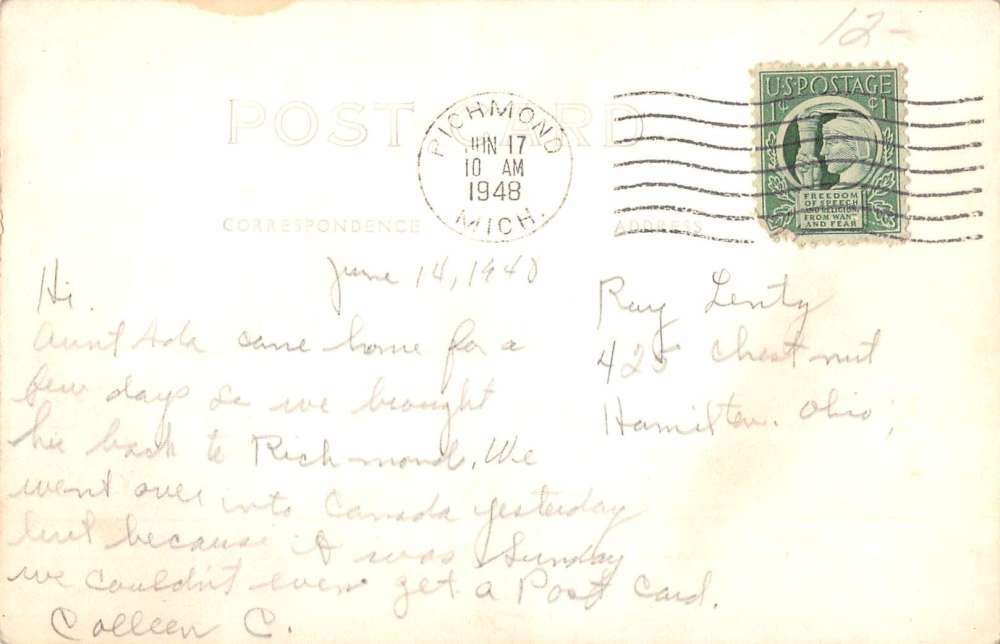 12-
POST CARD
U.S. POSTAGE
1¢ ¢1
FREEDOM
OF SPEECH
AND RELIGION,
FROM WANT
AND FEAR
RICHMOND
JUN 17
10 AM
1948
MICH.
CORRESPONDENCE
ADDRESS
June 14, 1948
Hi.
Aunt Ada came home for a
few days so we brought
her back to Richmond. We
went over into Canada yesterday
but because it was Sunday
we couldn't even get a Post Card.
Colleen C.
Ray Lentz
425 Chestnut
Hamilton, Ohio,